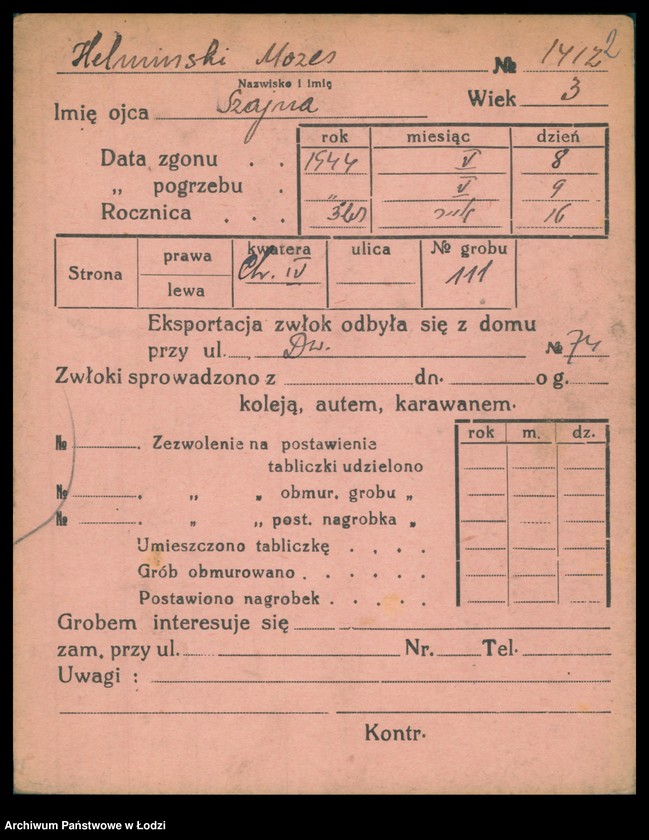 Helminski Mozes № 14122
Nazwisko i imię
Imię ojca Szajna Wiek 3
rok miesiąc dzień
Data zgonu . . 1944 V 8
„ pogrzebu . „ V 9
Rocznica . . . 16
Strona prawa lewa kwatera Ch. IV ulica № grobu 111
Eksportacja zwłok odbyła się z domu
przy ul. Dw. № 74
Zwłoki sprowadzono z dn. o g.
koleją, autem, karawanem.
rok m. dz.
№ . Zezwolenie na postawienie
tabliczki udzielono
№ . „ „ obmur. grobu „
№ . „ „ post. nagrobka „
Umieszczono tabliczkę . . . .
Grób obmurowano . . . . . .
Postawiono nagrobek . . . . .
Grobem interesuje się
zam. przy ul. Nr. Tel.
Uwagi :
Kontr.
Archiwum Państwowe w Łodzi